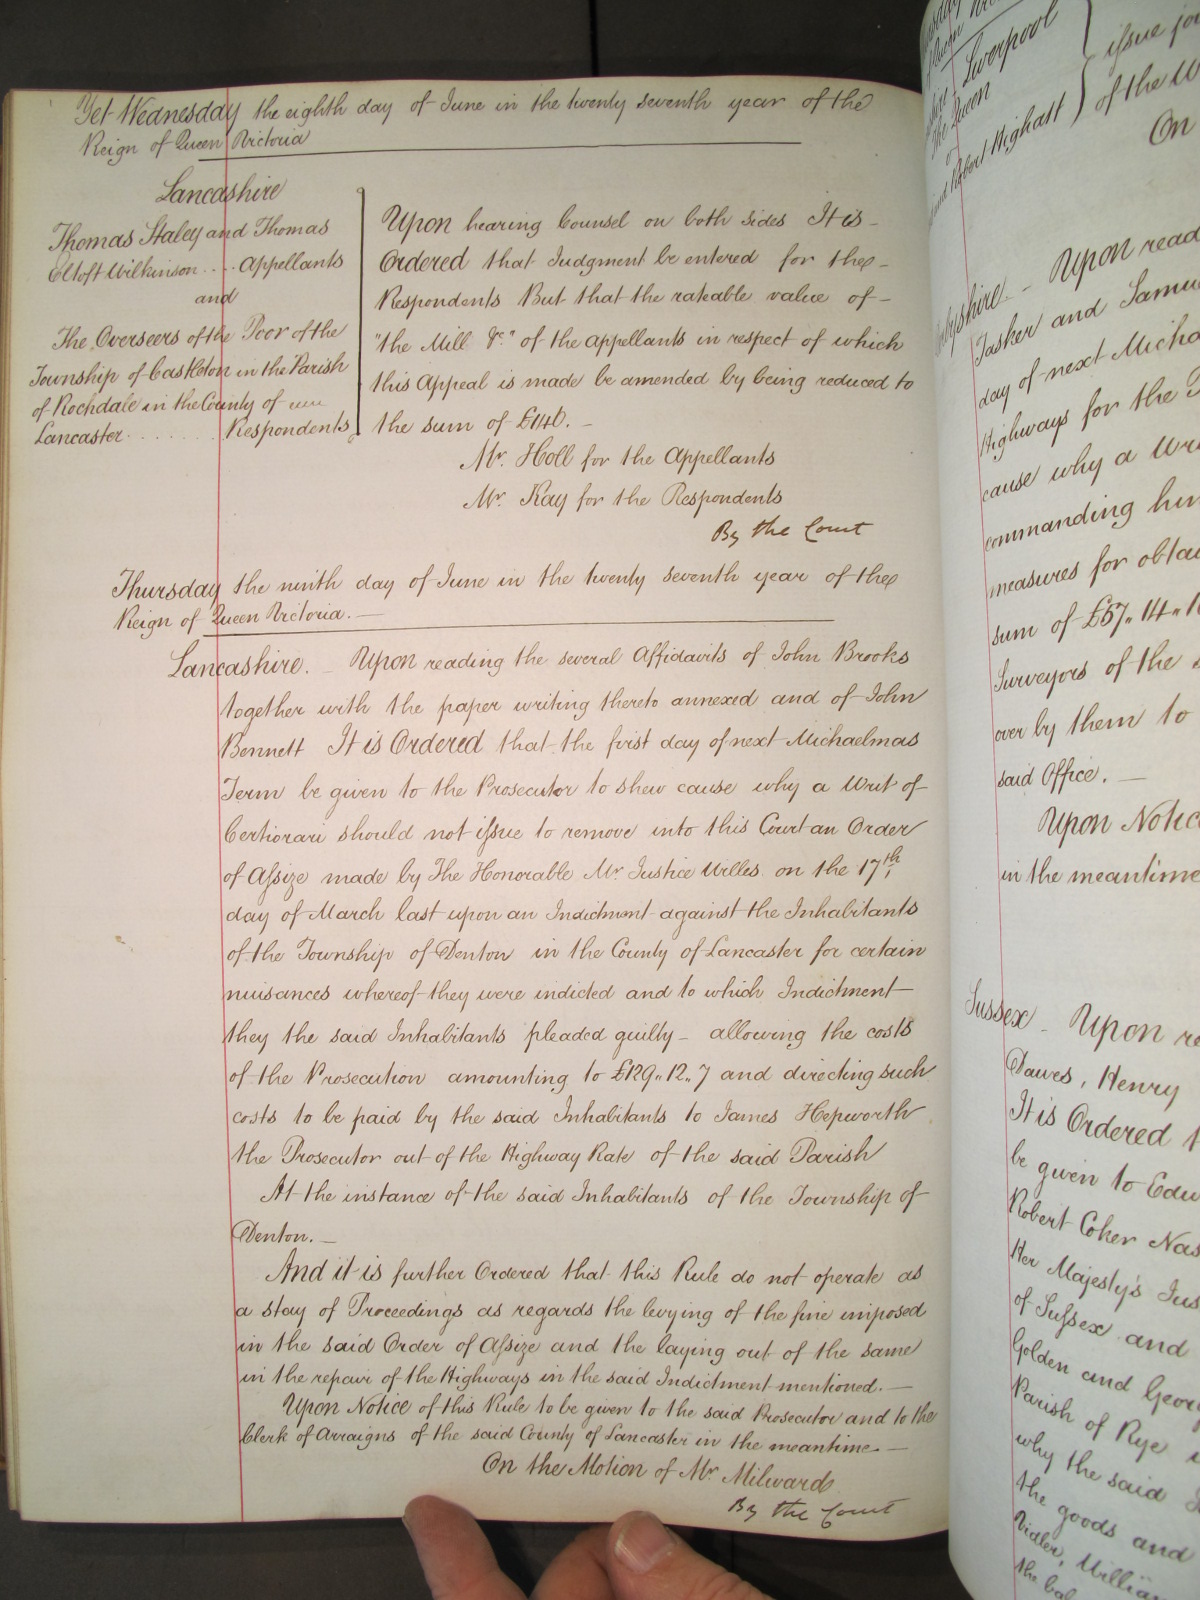 Yet Wednesday the eighth day of June in the twenty seventh year of the
Reign of Queen Victoria
Lancashire
Thomas Staley and Thomas
Oltoft Wilkinson .... Appellants
and
The Overseers of the Poor of the
Township of Castleton in the Parish
of Rochdale in the County of
Lancaster ....... Respondents
Upon hearing Counsel on both sides It is
Ordered that Judgment be entered for the
Respondents But that the rateable value of
"the Mill &c." of the appellants in respect of which
this Appeal is made be amended by being reduced to
the sum of £140. -
Mr. Holl for the Appellants
Mr. Kay for the Respondents
By the Court
Thursday the ninth day of June in the twenty seventh year of the
Reign of Queen Victoria. -
Lancashire. - Upon reading the several Affidavits of John Brooks
together with the paper writing thereto annexed and of John
Bennett It is Ordered that the first day of next Michaelmas
Term be given to the Prosecutor to shew cause why a Writ of
Certiorari should not issue to remove into this Court an Order
of Assize made by The Honorable Mr Justice Willes on the 17th
day of March last upon an Indictment against the Inhabitants
of the Township of Denton in the County of Lancaster for certain
nuisances whereof they were indicted and to which Indictment
they the said Inhabitants pleaded guilty - allowing the costs
of the Prosecution amounting to £129.. 12.. 7 and directing such
costs to be paid by the said Inhabitants to James Hepworth
the Prosecutor out of the Highway Rate of the said Parish
At the instance of the said Inhabitants of the Township of
Denton. -
And it is further Ordered that this Rule do not operate as
a stay of Proceedings as regards the levying of the fine imposed
in the said Order of Assize and the laying out of the same
in the repair of the Highways in the said Indictment mentioned. -
Upon Notice of this Rule to be given to the said Prosecutor and to the
Clerk of Arraigns of the said County of Lancaster in the meantime -
On the Motion of Mr Milward
By the Court
Liverpool
The Queen
Robert Highast
issue
of the
On
Upon read
Tasker and Samu
day of next Micha
Highways for the
cause why a Wri
commanding him
measures for obta
sum of £57.. 14.. 1
Surveyors of the
over by them to
said Office. -
Upon Notic
in the meantime
Sussex - Upon re
Dawes, Henry
It is Ordered
be given to Edw
Robert Coker Nas
Her Majesty's Jus
of Sussex and
Golden and Geor
Parish of Rye
why the said
the goods and
Vidler, William
the bal